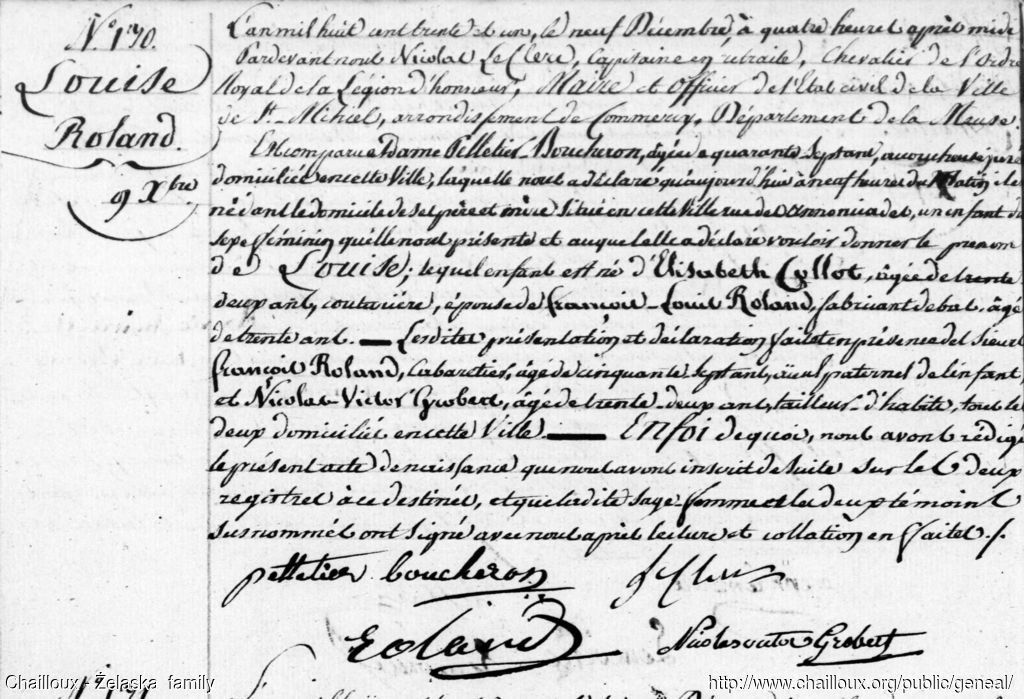 N.° 170.
Louise
Roland.
9 Xbre
L'an mil huit cent trente et un, le neuf Décembre, à quatre heures après midi
Pardevant nous Nicolas LeClerc, Capitaine en retraite, Chevalier de l'Ordre
Royal de la Légion d'honneur, Maire et Officier de l'État civil de la Ville
de St. Mihiel, arrondissement de Commercy, Département de la Meuse.
Est comparue Dame Pelletier-Boucheron, âgée de quarante sept ans, accoucheuse jurée
domiciliée en cette Ville, laquelle nous a déclaré qu'aujourd'hui à neuf heures du Matin, il est
né dans le domicile de ses père et mère situé en cette Ville rue des annonciades, un enfant du
sexe féminin qu'elle nous présente et auquel elle a déclaré vouloir donner le prénom
de Louise; lequel enfant est né d'Elisabeth Cullot, âgée de trente
deux ans, couturière, épouse de françois-Louis Roland, fabricant de bas, âgé
de trente ans. — Lesdites présentation et déclaration faites en présence des Sieurs
françois Roland, Cabaretier, âgé de cinquante sept ans, aïeul paternel de l'enfant,
et Nicolas-Victor Grobert, âgé de trente-deux ans, tailleur d'habits, tous les
deux domiciliés en cette Ville. — En foi de quoi, nous avons rédigé
le présent acte de naissance que nous avons inscrit de suite sur les deux
registres à ce destinés, et que ladite sage-femme et les deux témoins
susnommés ont signé avec nous après lecture et collation en faites./.
pelletier boucheron
Roland
Nicolas victor Grobert
Chailloux - Żelaska family
http://www.chailloux.org/public/geneal/